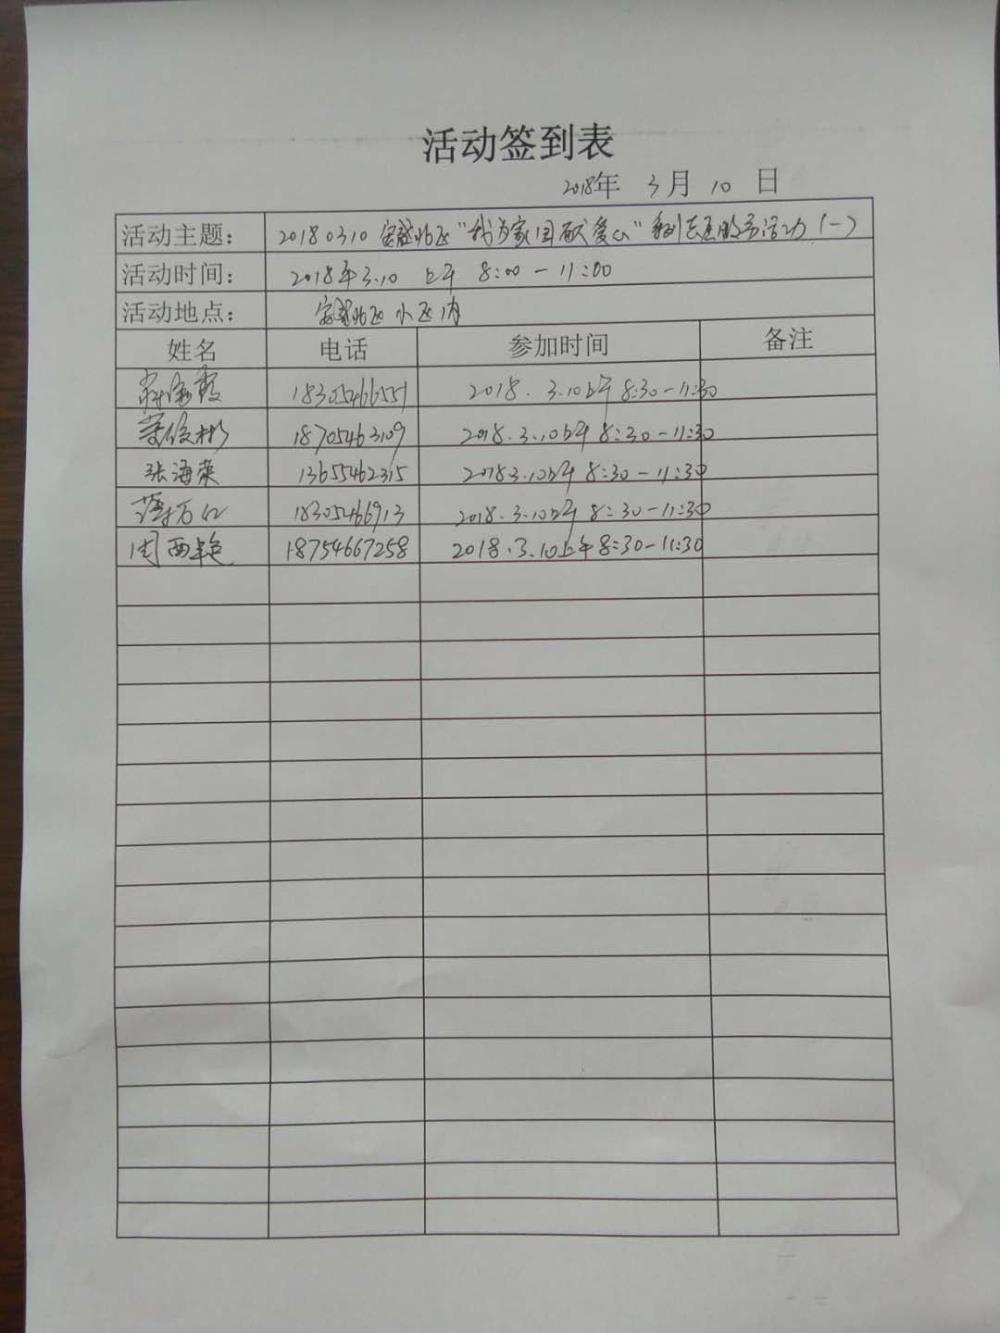 活动签到表
2018年 3月 10 日
活动主题： 20180310 安盛北区"我为家国献爱心"系列志愿服务活动（一）
活动时间： 2018年3.10 上午 8:00-11:00
活动地点： 安盛北区小区内
姓名 电话 参加时间 备注
霞 18305466551 2018.3.10上午 8:30-11:30
18705463109 2018.3.10上午 8:30-11:30
张海荣 13655462315 2018 3.10上午 8:30-11:30
18305466913 2018.3.10上午 8:30-11:30
周西艳 18754667258 2018.3.10上午 8:30-11:30